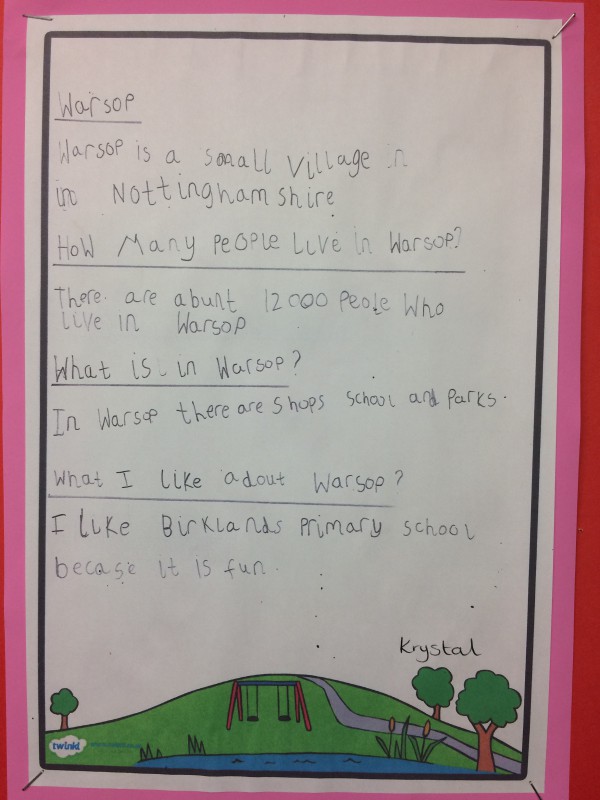 Warsop
Warsop is a small village in
in Nottinghamshire
How Many People Live in Warsop?
There are abunt 12000 Peole Who
live in Warsop
What is in Warsop?
In Warsop there are shops school and Parks.
What I like adout Warsop?
I like Birklands Primary school
becase it is fun.
Krystal
twinkl